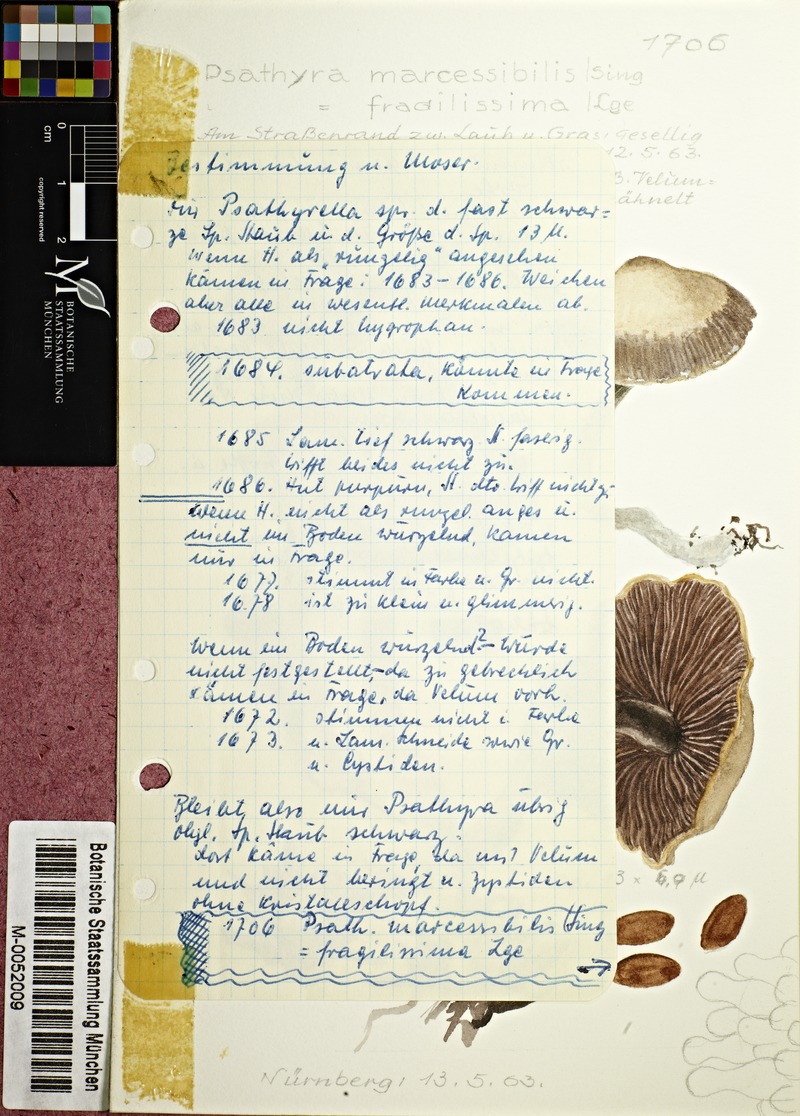 1706
Psathyra marcessibilis /Sing
= fragilissima /Lge
Am Straßenrand zw. Laub u. Gras. Gesellig
12.5.63.
B. Velum-
ähnelt
Bestimmung n. Moser.
Für Psathyrella spr. d. fast schwar=
ze Sp. Staub u. d. Größe d. Sp. 13 µ.
Wenn H. als „runzelig“ angesehen
kämen in Frage: 1683-1686. Weichen
aber alle in wesentl. Merkmalen ab.
1683 nicht hygrophan.
1684. subatrata, könnte in Frage
kommen.
1685 Lam. tief schwarz. St. faserig.
trifft beides nicht zu.
1686. Hut purpurn, St. dto. triff nicht z.
Wenn H. nicht als runzel. anges u.
nicht im Boden wurzelnd, kämen
nur in Frage.
1677. stimmt in Farbe u. Gr. nicht.
1678 ist zu klein u. glimmerig.
Wenn im Boden wurzelnd? - Wurde
nicht festgestellt, da zu gebrechlich
kämen in Frage, da Velum vorh.
1672. stimmen nicht i. Farbe
1673. u. Lam. Schneide sowie Gr.
u. Cystiden.
Bleibt also nur Psathyra übrig
obgl. Sp. Staub schwarz.
dort käme in Frage, da mit Velum
und nicht beringt u. Zystiden
ohne Kristallschopf.
1706 Psath. marcessibilis /Sing
= fragilissima Lge
3 × 6,9 µ
Nürnberg, 13.5.63.
0
cm
1
2
copyright reserved
BOTANISCHE
STAATSSAMMLUNG
MÜNCHEN
Botanische Staatssammlung München
M-0052009